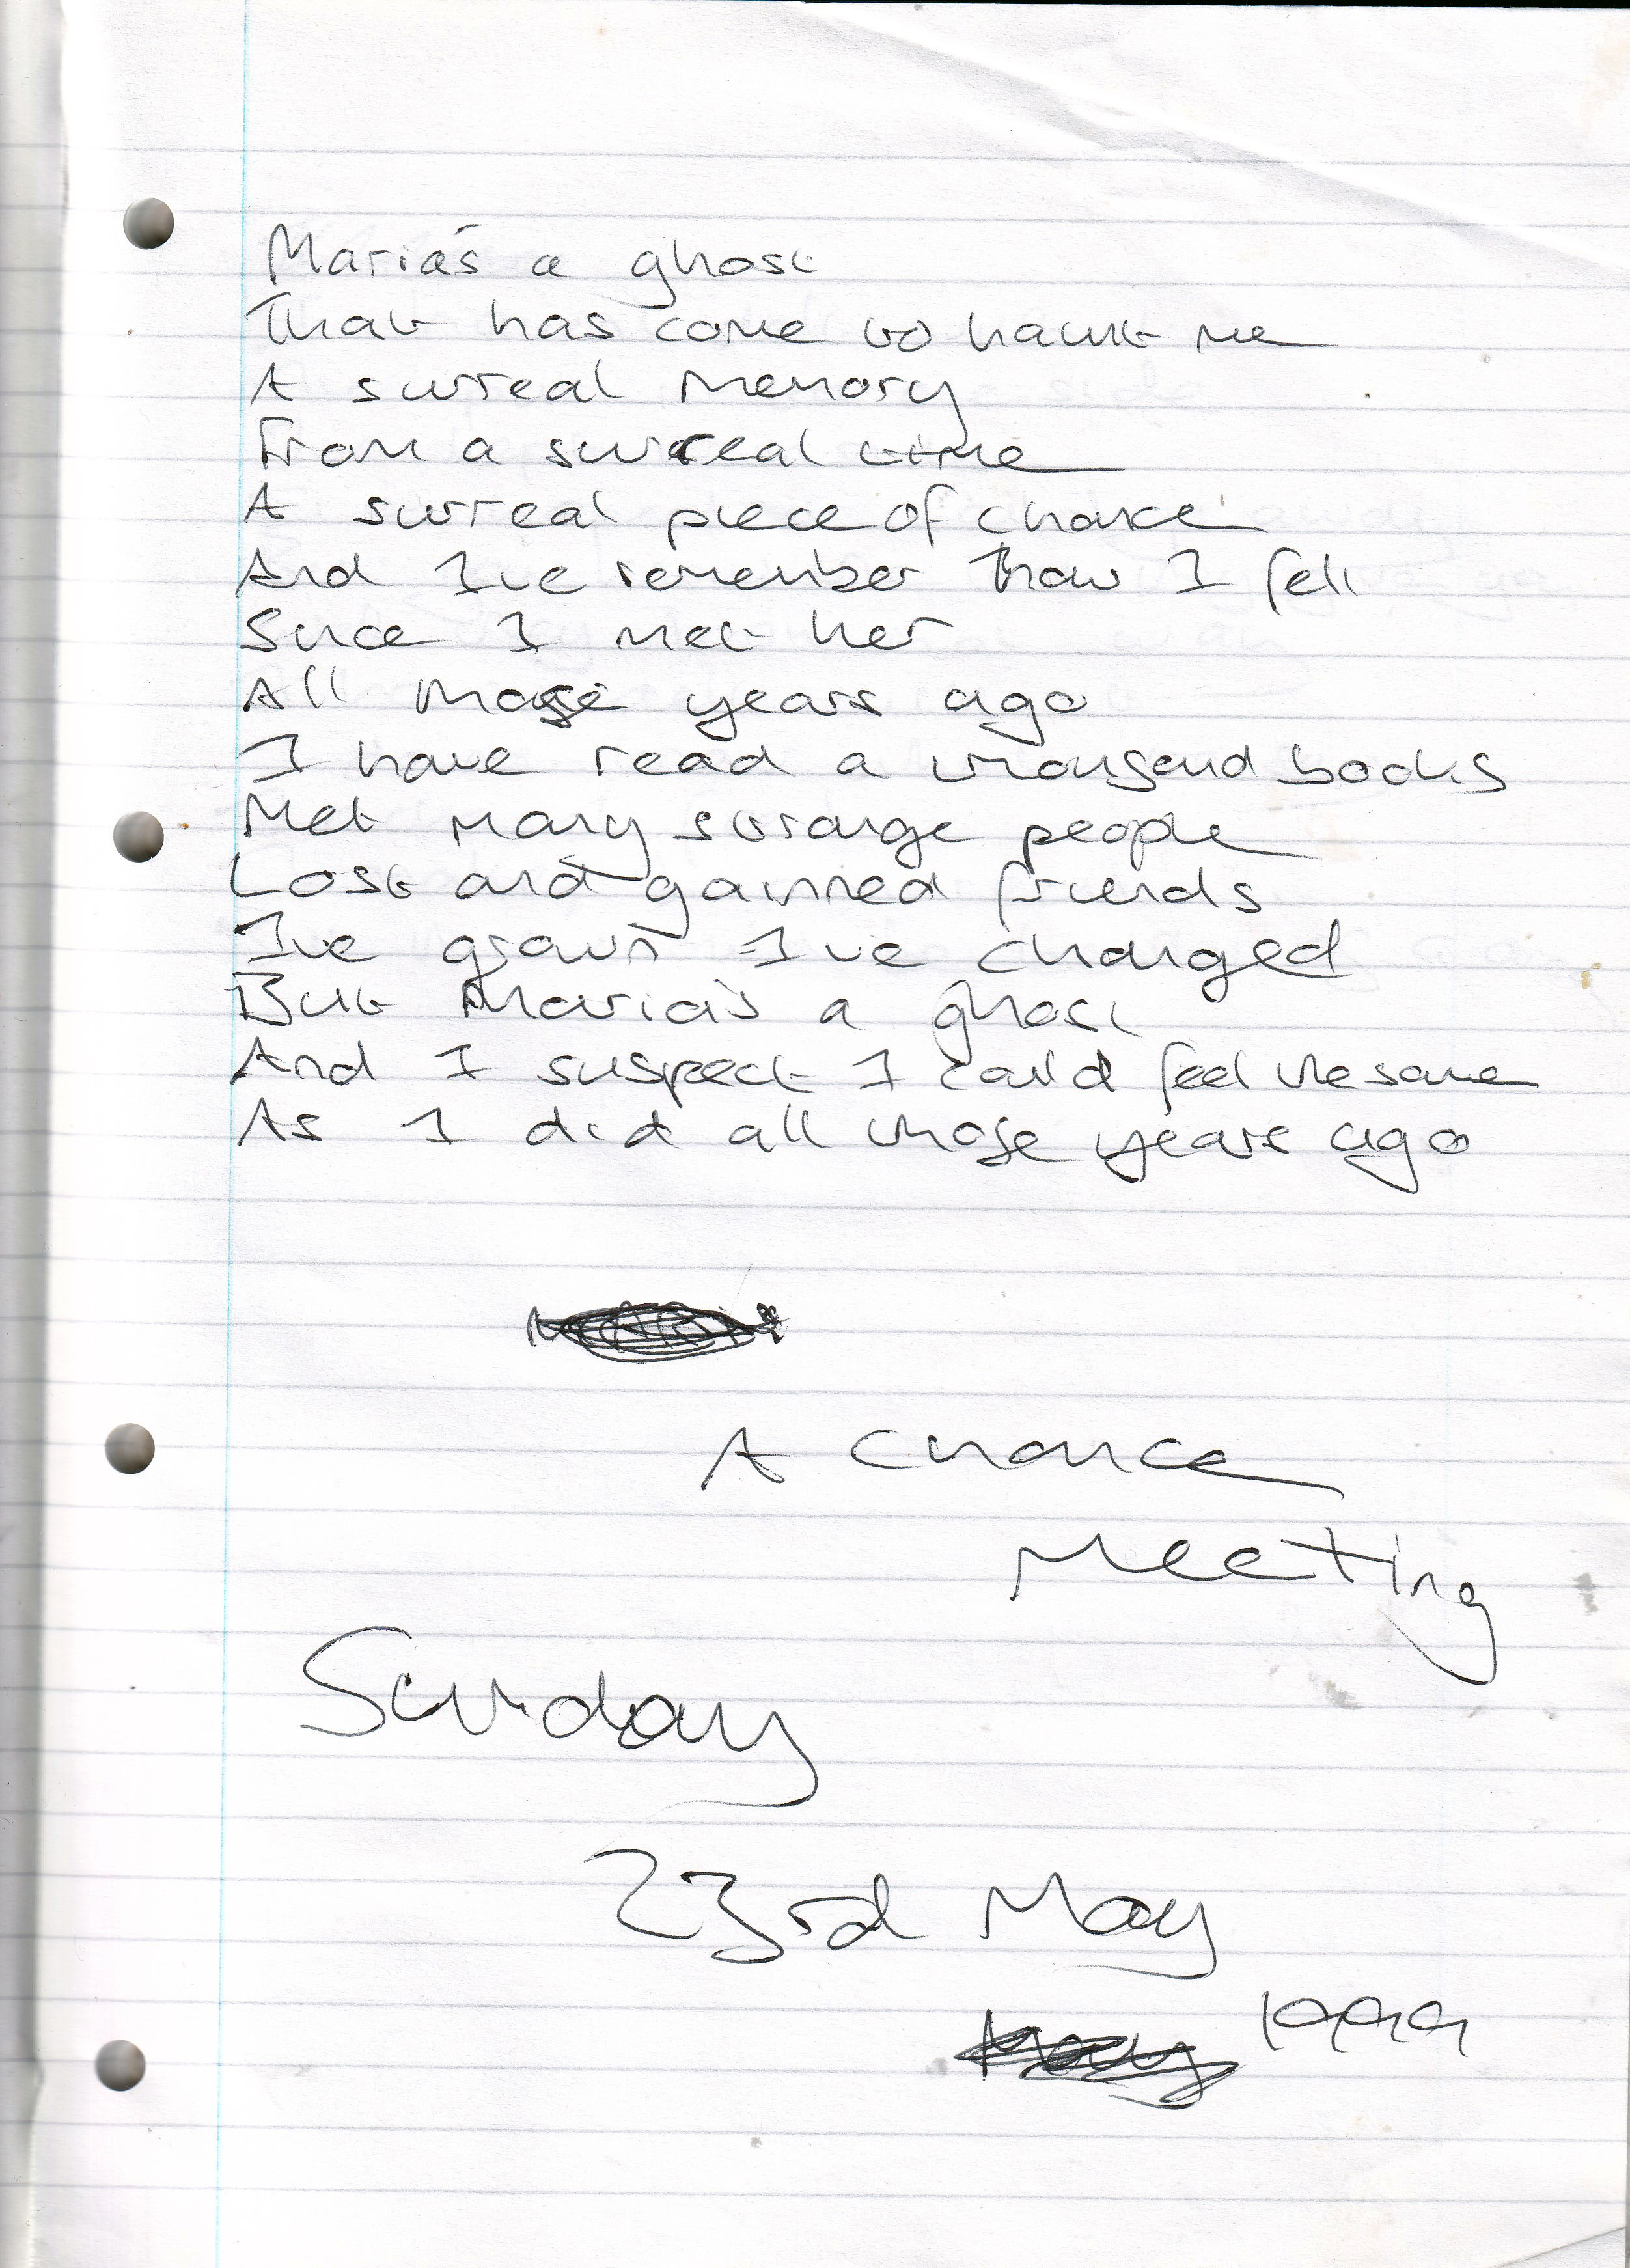 Maria's a ghost
That has come to haunt me
A surreal memory
From a surreal time
A surreal piece of chance
And I've remember how I fell
Since I met her
All those years ago
I have read a thousand books
Met many strange people
Lost and gained friends
I've grown I've changed
But Maria's a ghost
And I suspect I could feel the same
As I did all those years ago
A Chance
Meeting
Sunday
23rd May
1999
May